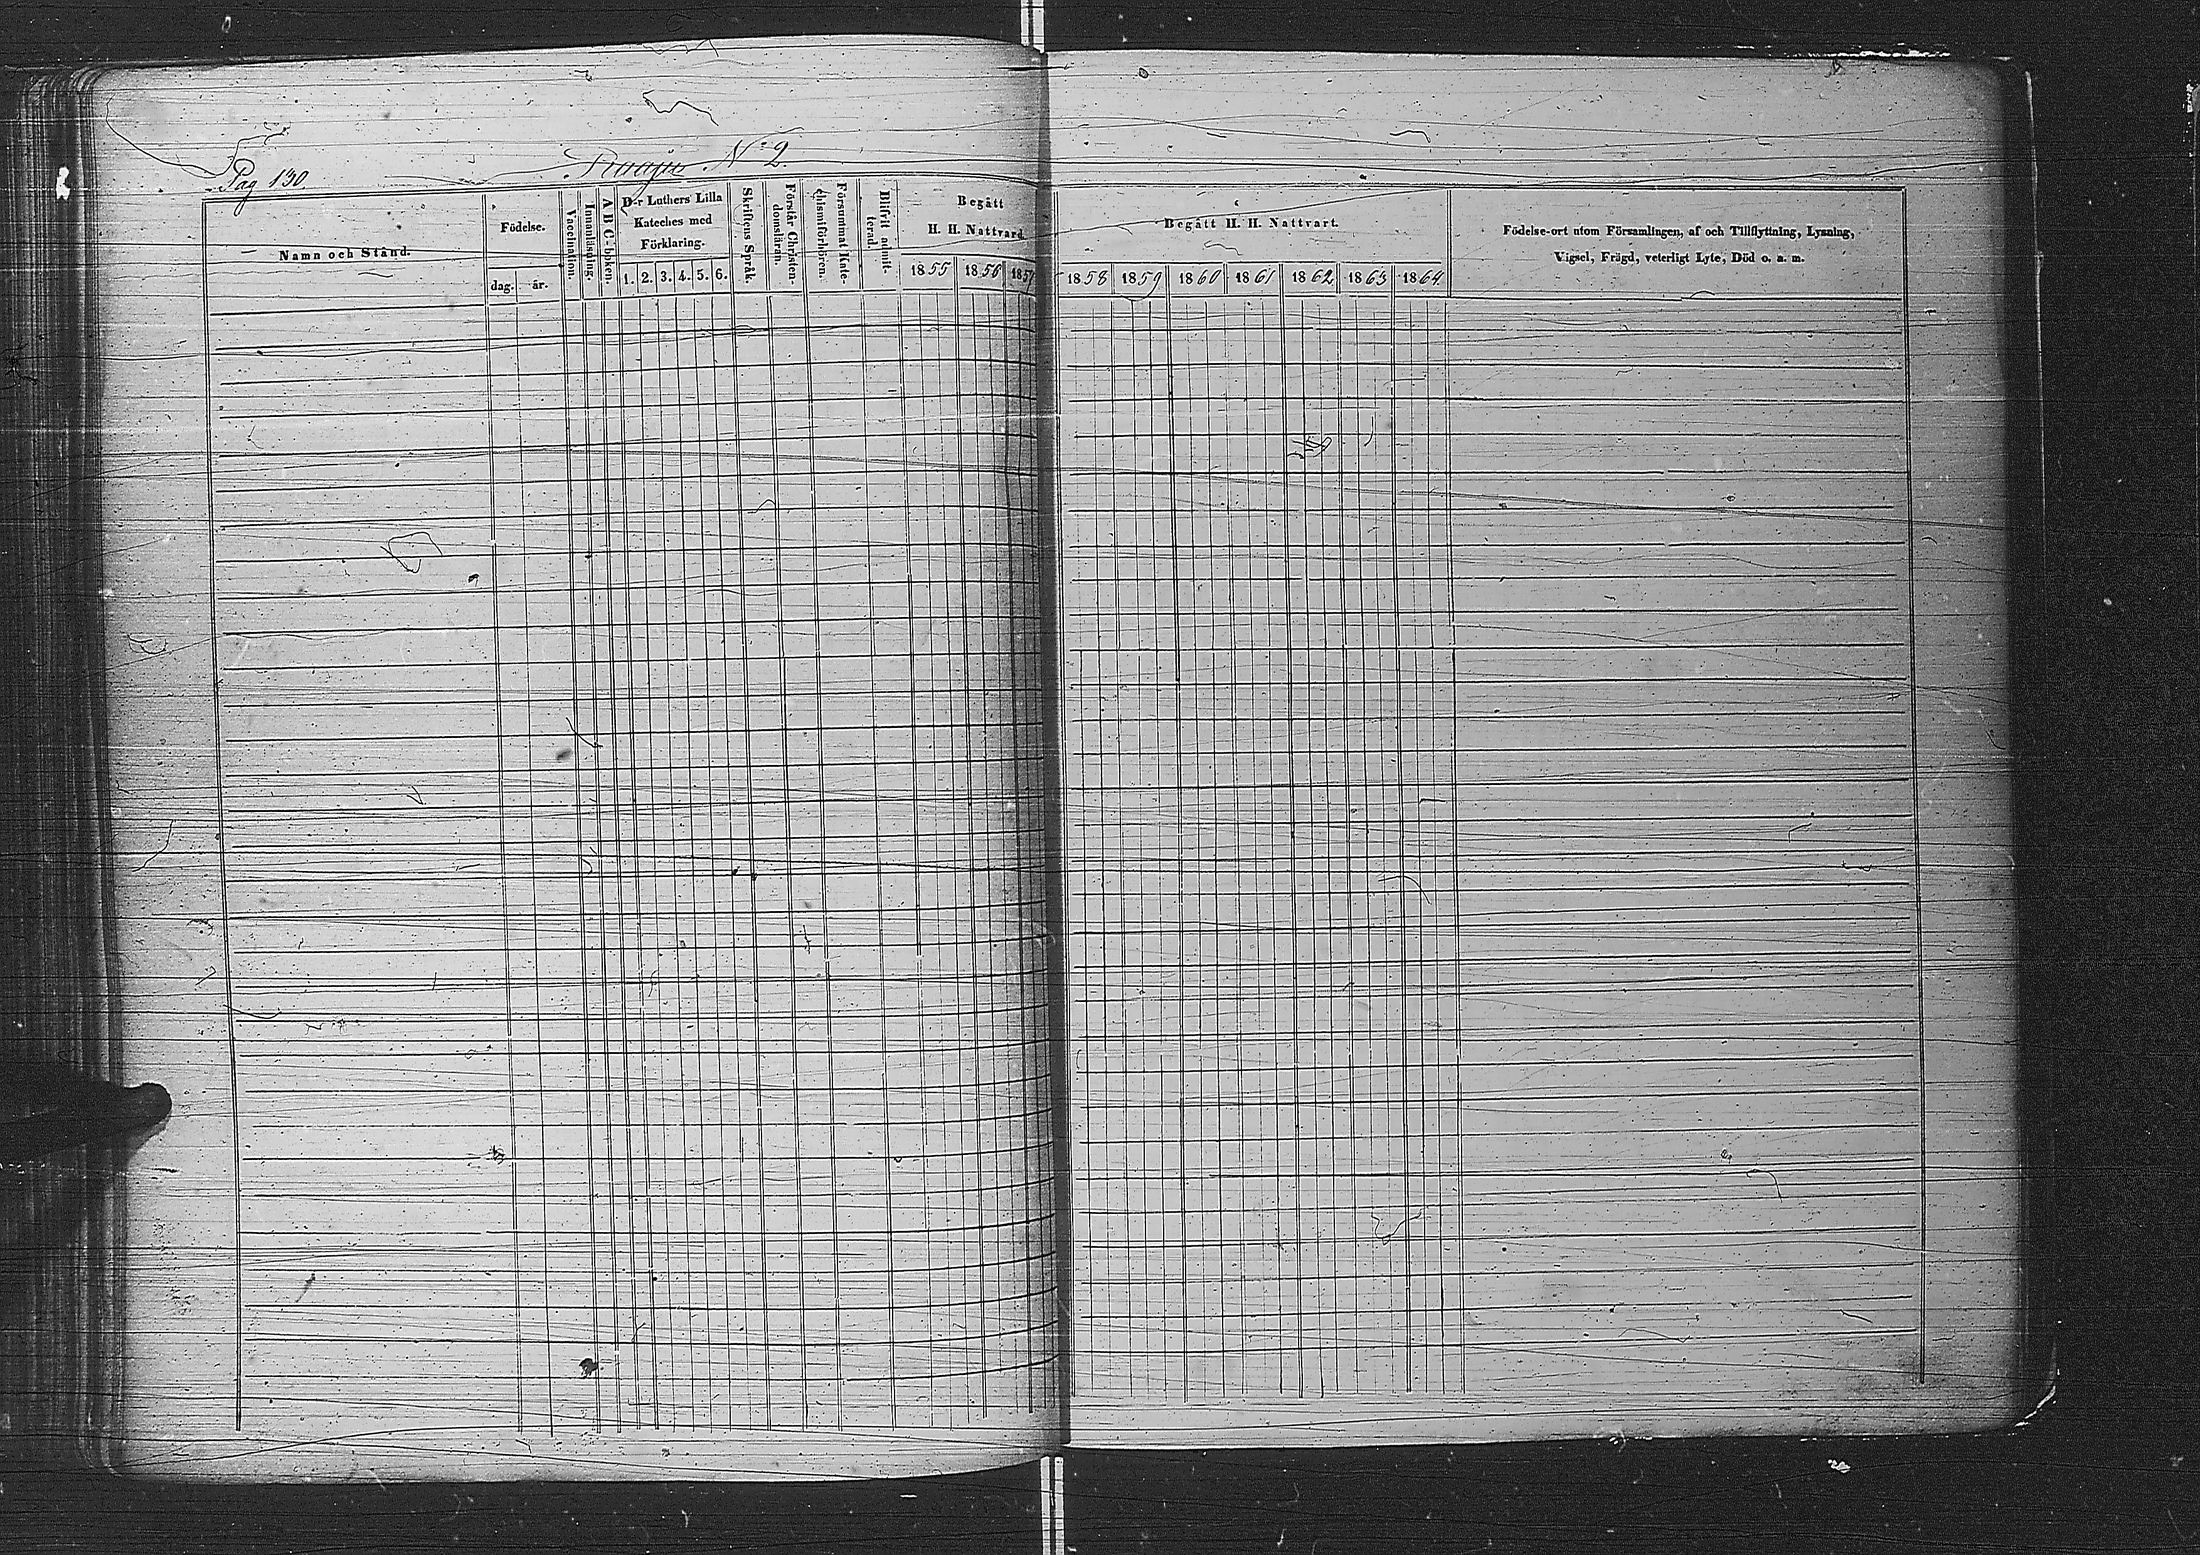 Pag 130.
Raaju N:o 2.
Namn och Stånd.
Födelse.
dag. år.
Vaccination.
Innanläsning.
A B C-boken.
D-r Luthers Lilla
Kateches med
Förklaring.
1. 2. 3. 4. 5. 6.
Skriftens Språk.
Förstår Christen-
domsläran.
Försummat Kate-
chismiförhören.
Blifvit admit-
terad.
Begått
H. H. Nattvard.
1855 1856 1857
Begått H. H. Nattvart.
1858 1859 1860 1861 1862 1863 1864
Födelse-ort utom Församlingen, af och Tillflyttning, Lysning,
Vigsel, Frägd, veterligt Lyte, Död o. s. m.